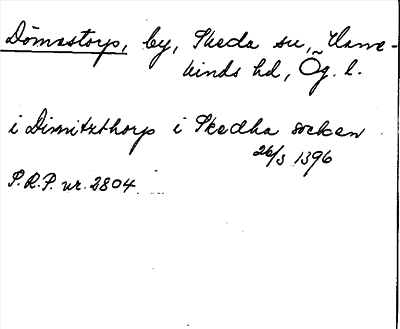 Dömestorp, by, Skeda sn, Hane-
kinds hd, Ög. l.
i Dimitzthorp i Skedha socken
26/3 1396
P.R.P. nr. 2804